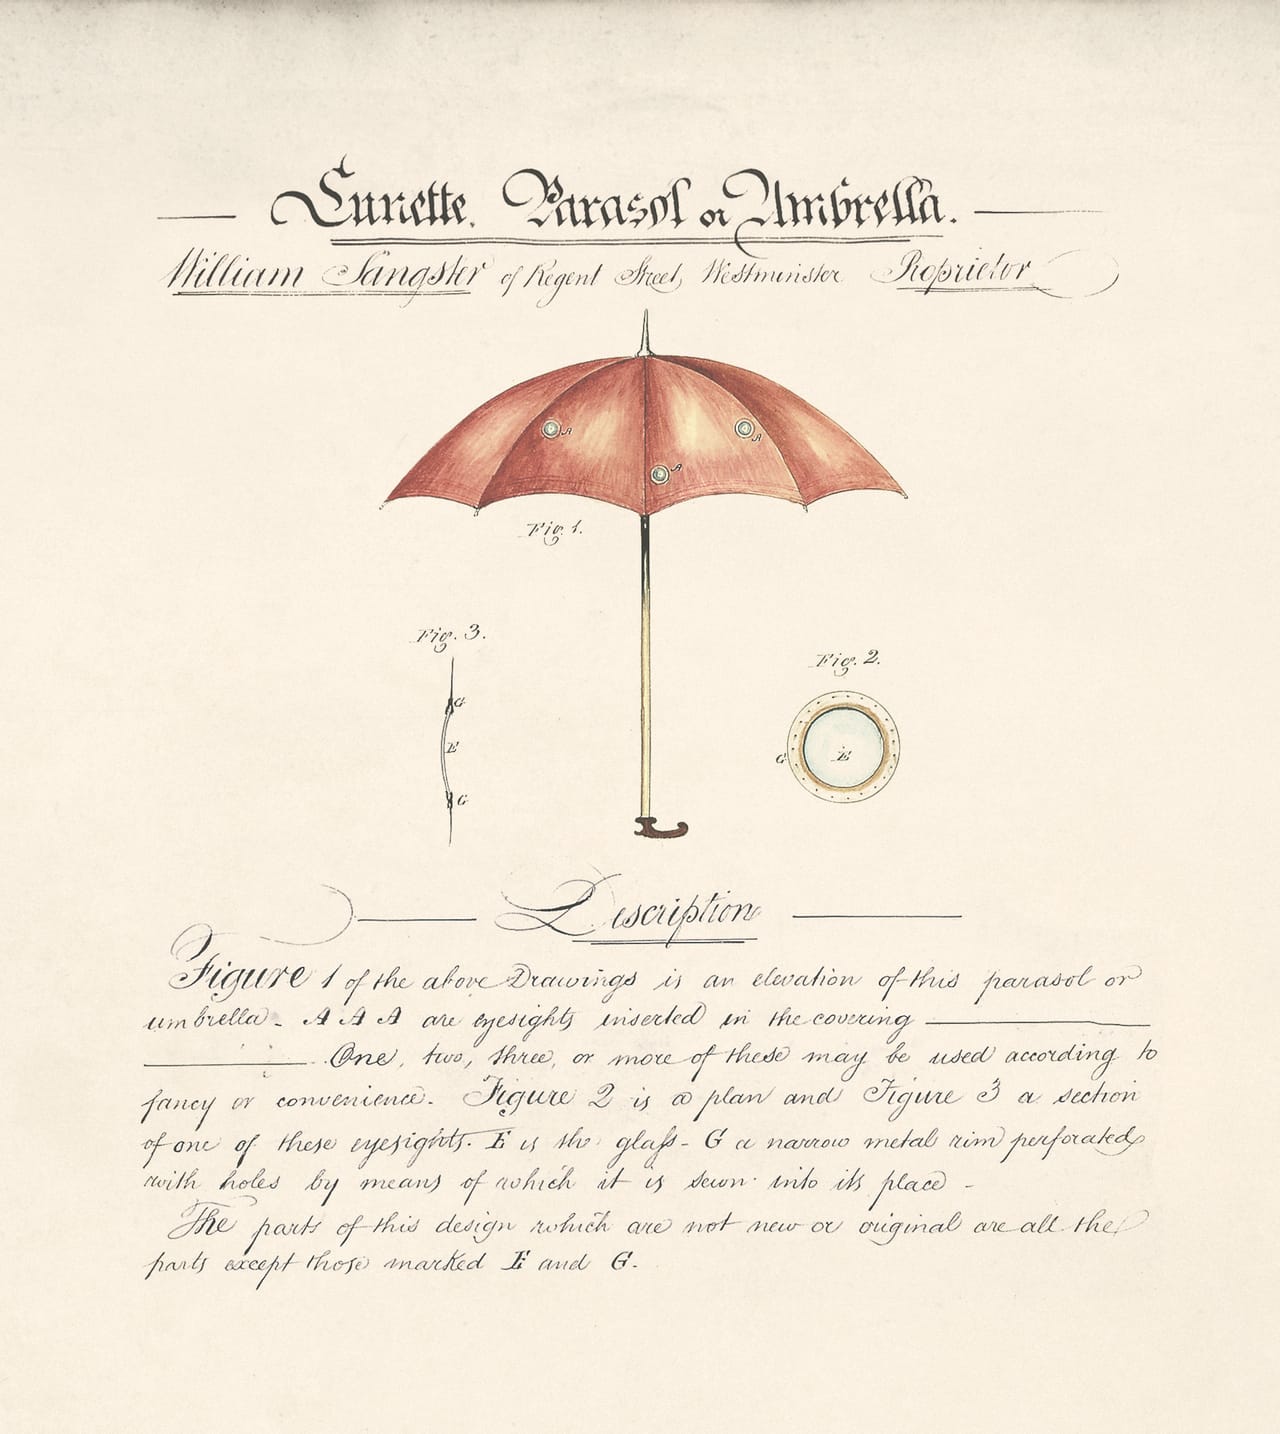 Lunette. Parasol or Umbrella.
William Sangster of Regent Street, Westminster Proprietor
A
A
A
Fig. 1.
Fig. 3.
Fig. 2.
G
E
G
G
E
Description
Figure 1 of the above Drawings is an elevation of this parasol or
umbrella - A A A are eyesights inserted in the covering
One, two, three, or more of these may be used according to
fancy or convenience. Figure 2 is a plan and Figure 3 a section
of one of these eyesights. E is the glass - G a narrow metal rim perforated
with holes by means of which it is sewn into its place -
The parts of this design which are not new or original are all the
parts except those marked E and G.